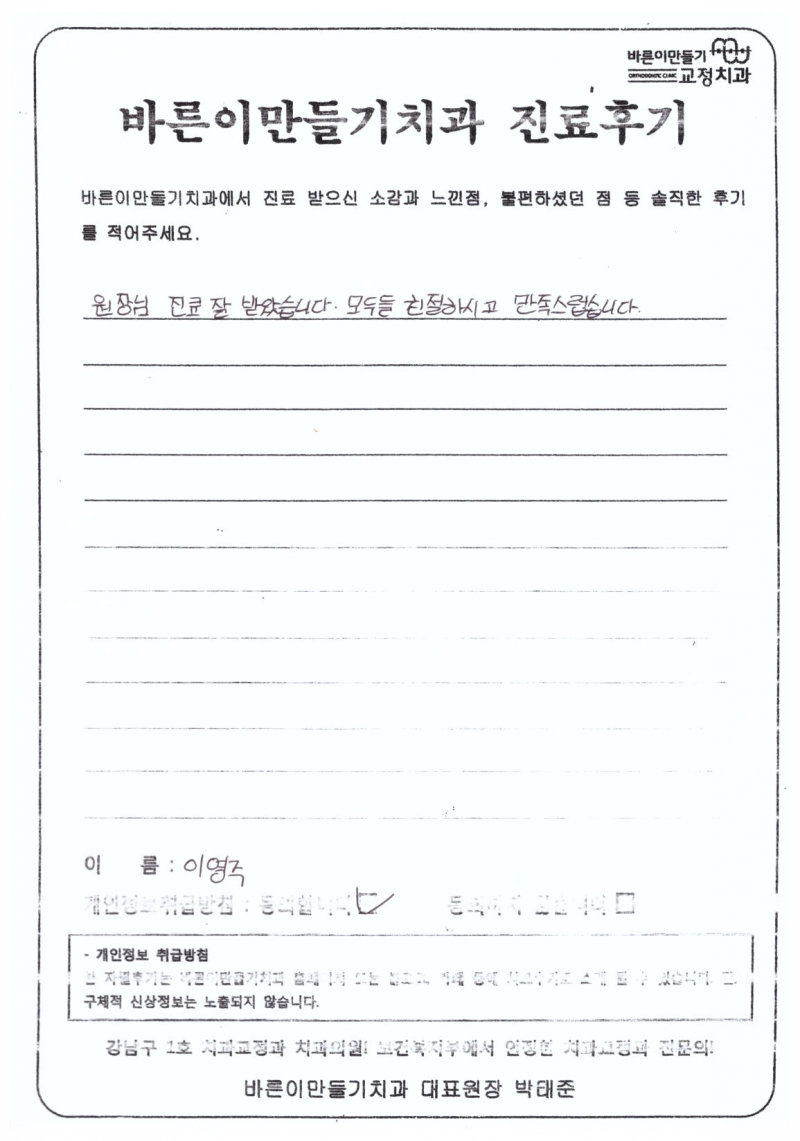 바른이만들기
ORTHODONTIC CLINIC 교정치과
바른이만들기치과 진료후기
바른이만들기치과에서 진료 받으신 소감과 느낀점, 불편하셨던 점 등 솔직한 후기
를 적어주세요.
원장님 진료 잘 받았습니다. 모두들 친절하시고 만족스럽습니다.
이 름 : 이영주
개인정보취급방침 : 동의합니다 동의하지 않습니다
- 개인정보 취급방침
본 자필후기는 바른이만들기치과 홈페이지 또는 블로그, 카페 등에 치료후기로 소개 될 수 있습니다. 단,
구체적 신상정보는 노출되지 않습니다.
강남구 1호 치과교정과 치과의원! 보건복지부에서 인정한 치과교정과 전문의!
바른이만들기치과 대표원장 박태준